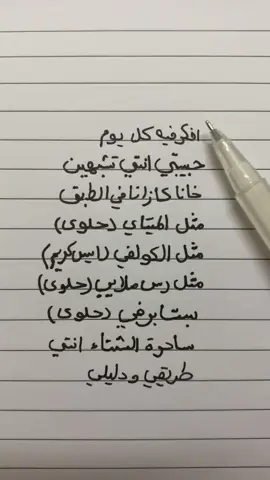 افكر فيه كل يوم
حبيبتي انتي تشبهين
خانا كازانا في الطبق
مثل الميتاي (حلوى)
مثل الكولفي (ايس كريم)
مثل رس ملايي (حلوى)
بستا برفي (حلوى)
ساحرة الشتاء انتي
طريقي ودليلي